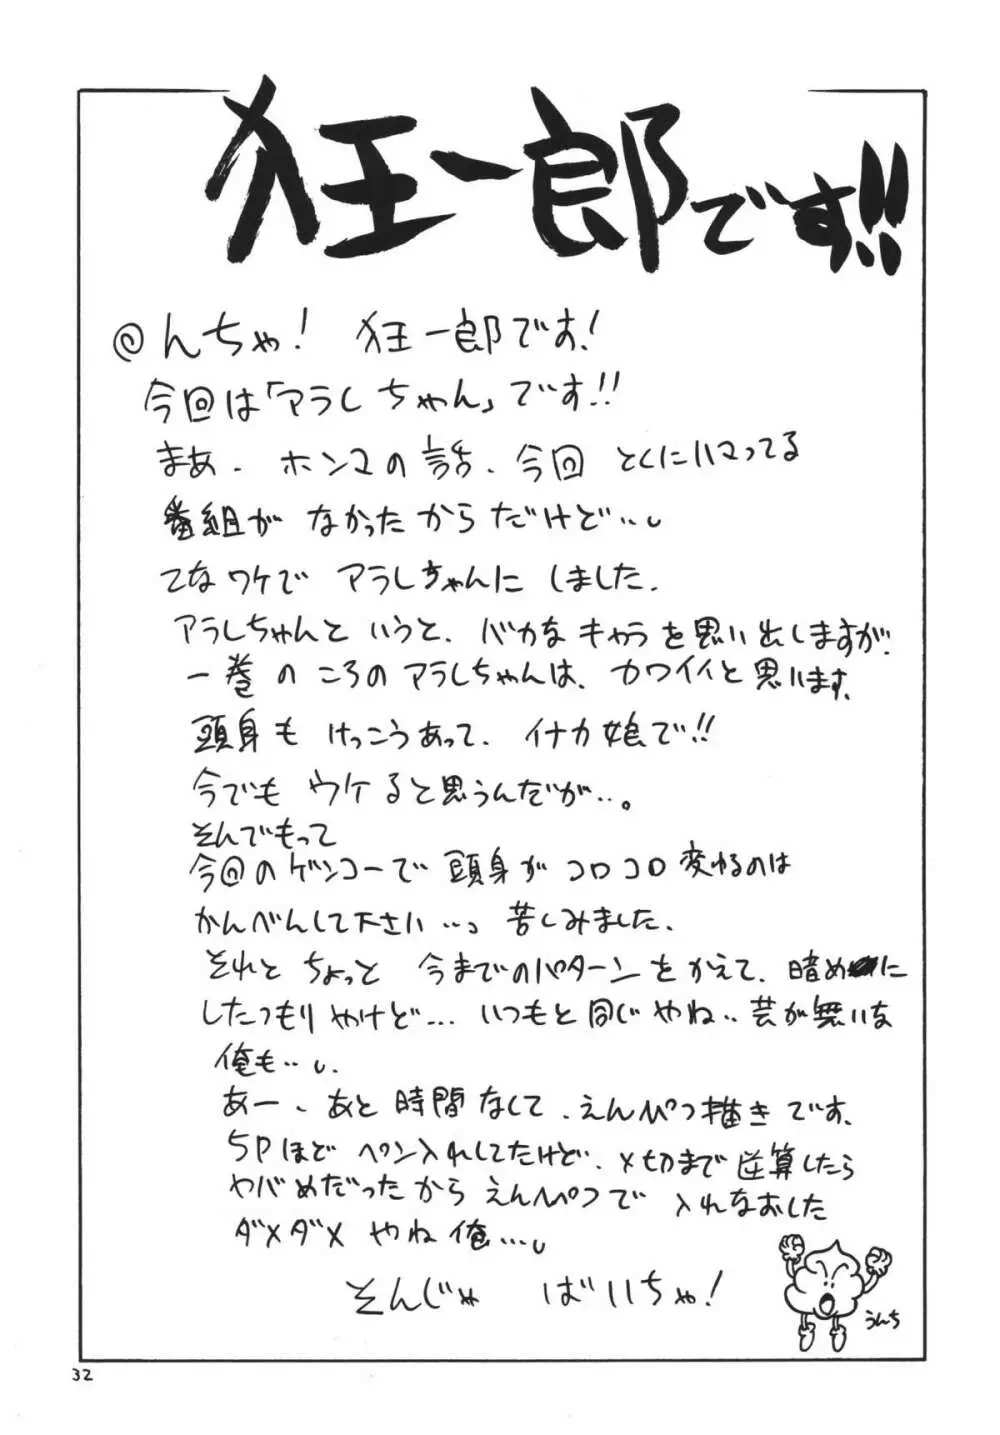 狂一郎です!!
@んちゃ! 狂一郎です!
今回は「アラレちゃん」です!!
まあ、ホンマの話、今回 とくにハマってる
番組が なかったからだけど…。
てなワケで アラレちゃんに しました。
アラレちゃんと いうと、バカな キャラを思い出しますが、
一巻の ころの アラレちゃんは、カワイイと思います。
頭身も けっこうあって、イナカ娘で!!
今でも ウケると思うんだが…。
そんでもって
今回のゲンコーで 頭身が コロコロ 変わるのは
かんべんして下さい…っ 苦しみました。
それと ちょっと 今までのパターン をかえて、暗めに
したつもりやけど… いつもと同じやね… 芸が無いな
俺も…。
あー、あと 時間なくて、えんぴつ描きです。
5Pほど ペン入れしてたけど、〆切まで逆算したら
ヤバめだったから えんぴつで 入れなおしました
ダメダメ やね俺…。
そんじゃ ばいちゃ!
うんち
32